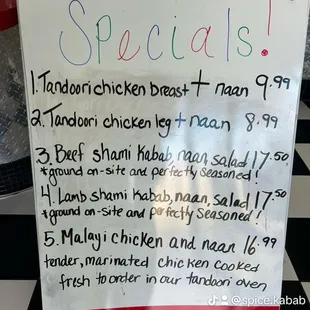 Specials!
1. Tandoori chicken breast + naan 9.99
2. Tandoori chicken leg + naan 8.99
3. Beef shami kabab, naan, salad 17.50
*ground on-site and perfectly seasoned!
4. Lamb shami kabab, naan, salad 17.50
*ground on-site and perfectly seasoned!
5. Malayi chicken and naan 16.99
tender, marinated chicken cooked
fresh to order in our tandoori oven
@spice.kabab